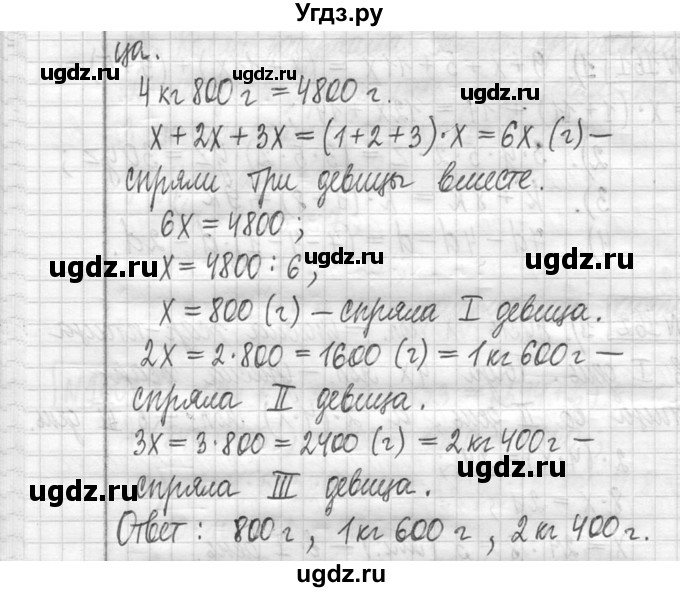 Угдз.ру
ца.
ugdz.ru ugdz.ru
4 кг 800 г = 4800 г.
ugdz.ru
x + 2x + 3x = (1+2+3)·x = 6x. (г) –
спряли три девицы вместе.
6x = 4800 ;
ugdz.ru ugdz.ru ugdz.ru
x = 4800 : 6 ;
x = 800 (г) – спряла I девица.
2x = 2·800 = 1600 (г) = 1 кг 600 г –
ugdz.ru ugdz.ru
спряла II девица.
3x = 3·800 = 2400 (г) = 2 кг 400 г –
ugdz.ru
спряла III девица.
ugdz.ru ugdz.ru
Ответ : 800 г , 1 кг 600 г , 2 кг 400 г.
ugdz.ru